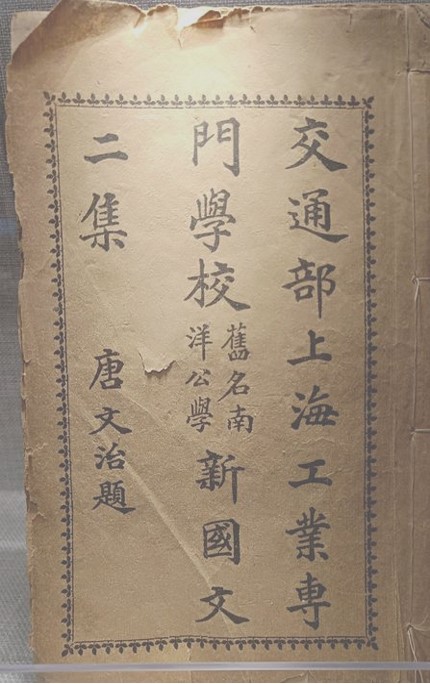 交通部上海工業専
門學校
舊名南
洋公學
新國文
二集 唐文治題